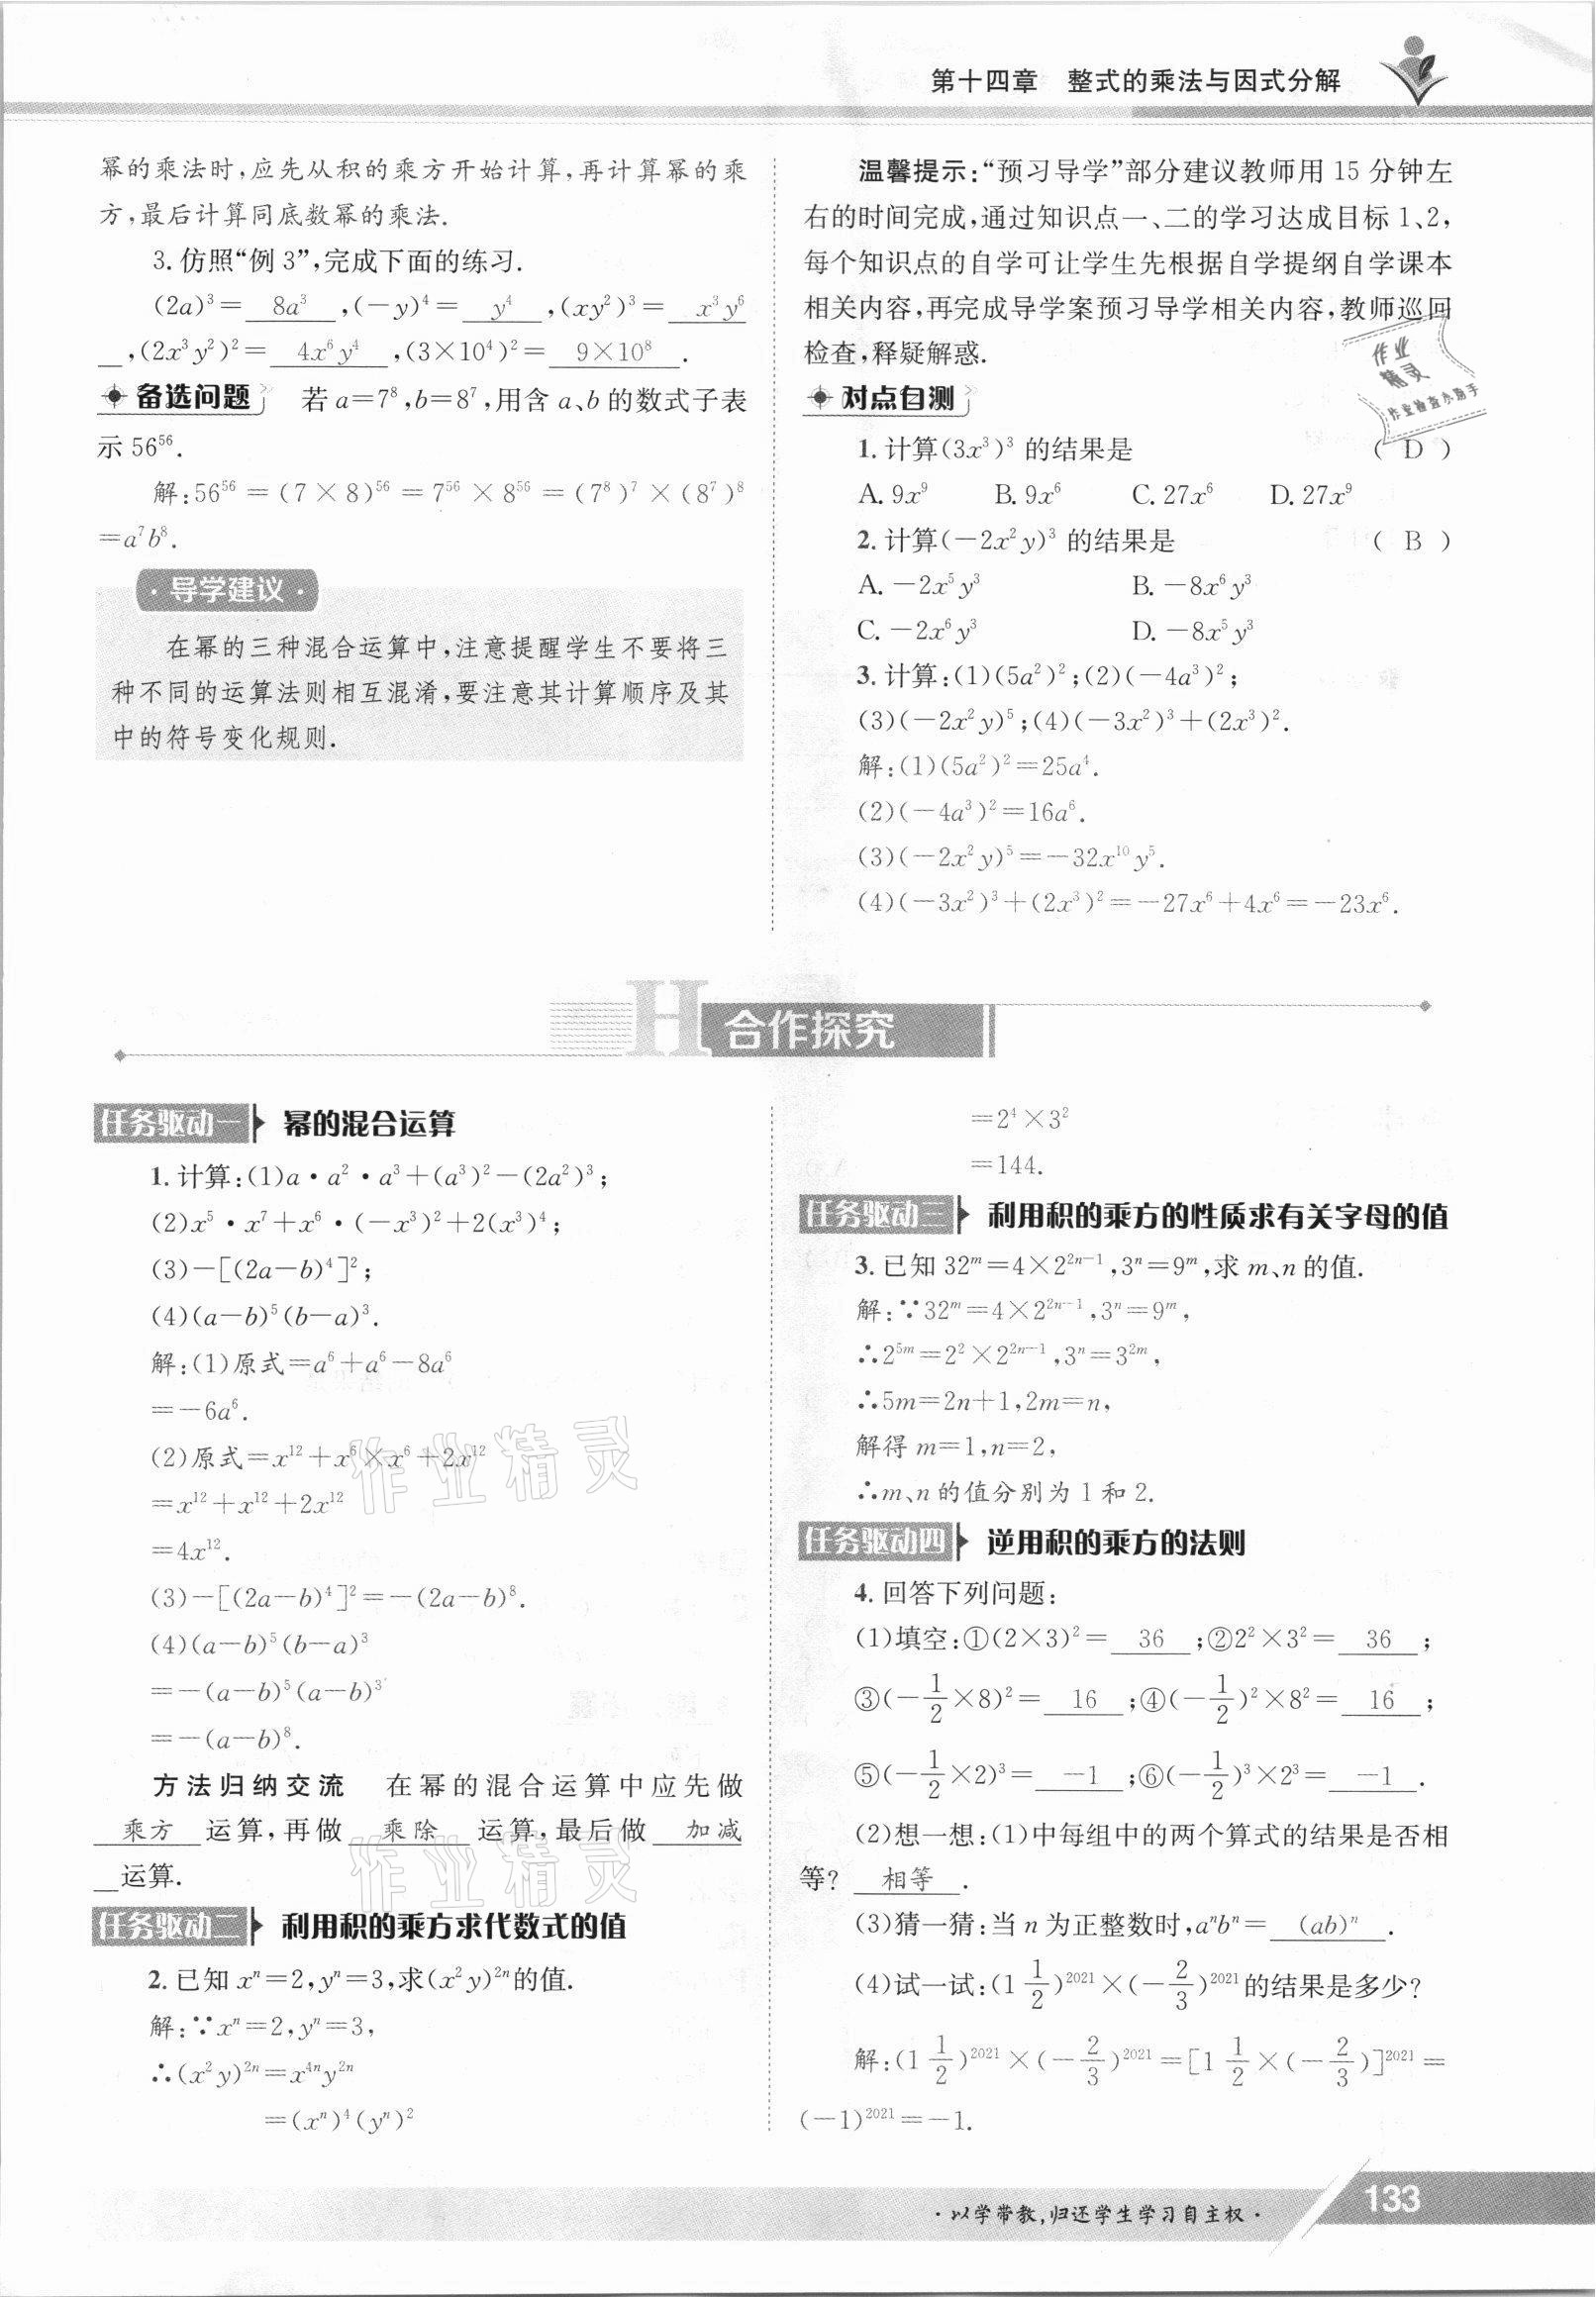 第十四章 整式的乘法与因式分解
幂的乘法时,应先从积的乘方开始计算,再计算幂的乘
方,最后计算同底数幂的乘法.
3. 仿照“例 3”,完成下面的练习.
(2a)³= 8a³ ,(-y)⁴= y⁴ ,(xy²)³= x³y⁶
,(2x³y²)²= 4x⁶y⁴ ,(3×10⁴)²= 9×10⁸ .
备选问题 若 a=7⁸,b=8⁷,用含 a、b 的数式子表
示 56⁵⁶.
解:56⁵⁶=(7×8)⁵⁶=7⁵⁶×8⁵⁶=(7⁸)⁷×(8⁷)⁸
=a⁷b⁸.
·导学建议·
在幂的三种混合运算中,注意提醒学生不要将三
种不同的运算法则相互混淆,要注意其计算顺序及其
中的符号变化规则.
温馨提示:“预习导学”部分建议教师用 15 分钟左
右的时间完成,通过知识点一、二的学习达成目标 1、2,
每个知识点的自学可让学生先根据自学提纲自学课本
相关内容,再完成导学案预习导学相关内容,教师巡回
检查,释疑解惑.
作业
精灵
作业检查小助手
对点自测
1. 计算(3x³)³ 的结果是 ( D )
A. 9x⁹ B. 9x⁶ C. 27x⁶ D. 27x⁹
2. 计算(-2x²y)³ 的结果是 ( B )
A. -2x⁵y³ B. -8x⁶y³
C. -2x⁶y³ D. -8x⁵y³
3. 计算:(1)(5a²)²;(2)(-4a³)²;
(3)(-2x²y)⁵;(4)(-3x²)³+(2x³)².
解:(1)(5a²)²=25a⁴.
(2)(-4a³)²=16a⁶.
(3)(-2x²y)⁵=-32x¹⁰y⁵.
(4)(-3x²)³+(2x³)²=-27x⁶+4x⁶=-23x⁶.
H 合作探究
任务驱动一 幂的混合运算
1. 计算:(1)a·a²·a³+(a³)²-(2a²)³;
(2)x⁵·x⁷+x⁶·(-x³)²+2(x³)⁴;
(3)-[(2a-b)⁴]²;
(4)(a-b)⁵(b-a)³.
解:(1)原式=a⁶+a⁶-8a⁶
=-6a⁶.
(2)原式=x¹²+x⁶×x⁶+2x¹²
=x¹²+x¹²+2x¹²
=4x¹².
(3)-[(2a-b)⁴]²=-(2a-b)⁸.
(4)(a-b)⁵(b-a)³
=-(a-b)⁵(a-b)³
=-(a-b)⁸.
作业精灵
方法归纳交流 在幂的混合运算中应先做
乘方 运算,再做 乘除 运算,最后做 加减
运算.
作业精灵
任务驱动二 利用积的乘方求代数式的值
2. 已知 xⁿ=2,yⁿ=3,求(x²y)²ⁿ的值.
解:∵xⁿ=2,yⁿ=3,
∴(x²y)²ⁿ=x⁴ⁿy²ⁿ
=(xⁿ)⁴(yⁿ)²
=2⁴×3²
=144.
任务驱动三 利用积的乘方的性质求有关字母的值
3. 已知 32ᵐ=4×2²ⁿ⁻¹,3ⁿ=9ᵐ,求 m、n 的值.
解:∵32ᵐ=4×2²ⁿ⁻¹,3ⁿ=9ᵐ,
∴2⁵ᵐ=2²×2²ⁿ⁻¹,3ⁿ=3²ᵐ,
∴5m=2n+1,2m=n,
解得 m=1,n=2,
∴m、n 的值分别为 1 和 2.
任务驱动四 逆用积的乘方的法则
4. 回答下列问题:
(1)填空:①(2×3)²= 36 ;②2²×3²= 36 ;
③(-1/2×8)²= 16 ;④(-1/2)²×8²= 16 ;
⑤(-1/2×2)³= -1 ;⑥(-1/2)³×2³= -1 .
(2)想一想:(1)中每组中的两个算式的结果是否相
等? 相等 .
(3)猜一猜:当 n 为正整数时,aⁿbⁿ= (ab)ⁿ .
(4)试一试:(1 1/2)²⁰²¹×(-2/3)²⁰²¹的结果是多少?
解:(1 1/2)²⁰²¹×(-2/3)²⁰²¹=[1 1/2×(-2/3)]²⁰²¹=
(-1)²⁰²¹=-1.
·以学带教,归还学生学习自主权·
133